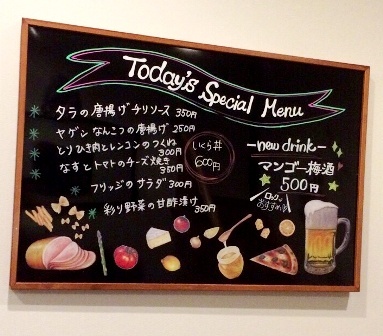 Today's Special Menu
タラの唐揚げチリソース 350円
ヤゲンなんこつの唐揚げ 250円
とりひき肉とレンコンのつくね
300円
なすとトマトのチーズ焼き
350円
フリッジのサラダ 300円
彩り野菜の甘酢漬け 350円
いくら丼
600円
-new drink-
マンゴー梅酒
500円
ロックが
おすすめ